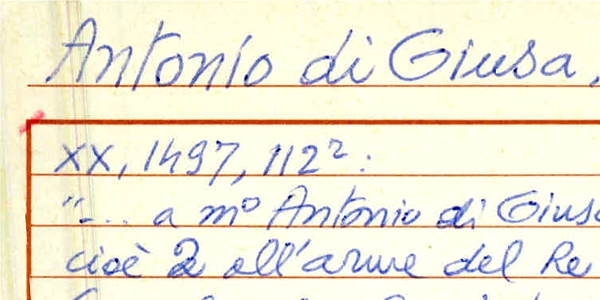 Antonio di Giusa,
XX, 1497, 112²:
"... a m° Antonio di Giusa
cioè 2 all'arme del Re